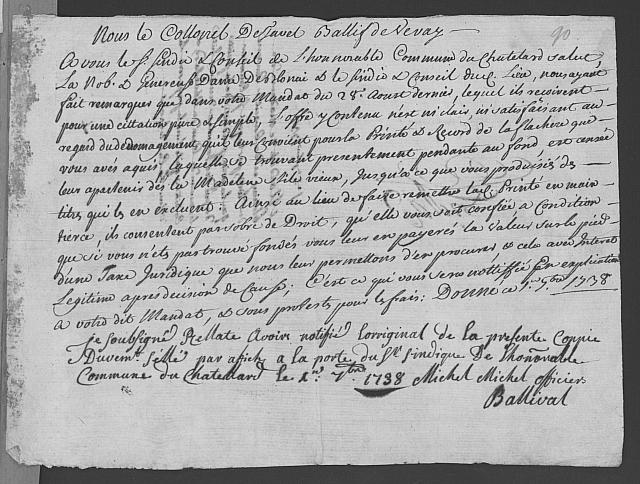 90
Nous le Collonel De Tavel Ballif de Vevay
A vous le Sr. sindic & Conseil de L'honnorable Commune du Chatelard salut,
La Nob. & Genereuse Dame De Blonai & le sindic & Conseil dud. Lieu, nous ayant
fait remarquer que dans votre Mandat du 28e. Aoust dernier, lequel ils recoivent
pour une cittation pure & simple, L'offre y Contenu n'est ni clair, ni satisfaisant au
regard du dedomagement, qui leur Convient pour la Printe & Record de la flachere que
vous avés aquis, laquelle se trouvant presentement pendante au fond, est censée
leur apartenir dès la Madeleine stile vieux, Jusqu'à ce que vous produisiés des
titres qui les en excluent; Ainsi au lieu de faire remettre lad. Printe en main
tierce, ils consentent par sobre de Droit, qu'elle vous soit confiée à Condition
que si vous n'êts pas trouvé fondés vous leur en payerés la Valeur sur le pied
d'une Taxe Juridique que nous leur permettons d'en procurer & cela avec Interet
Legitime apres decision de Cause; C'est ce qui vous sera nottiffié En explication
A votre dit Mandat, & sous protests pour les frais: Donné ce 1r. 7bre 1738
je soubsigné Rellate Avoir notifié lorriginal de la presente Coppie
Duement sellé par afiche a la porte du Sr. sindique De lhonorable
Commune du Chatellard le 1r. 7bre 1738 Michel Michel officier
Ballival